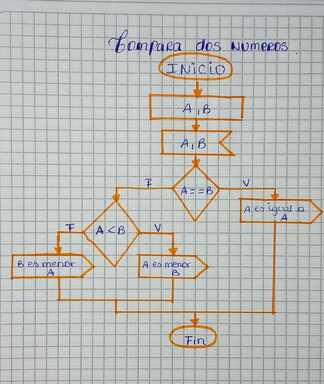 Compara dos numeros.
INICIO
A, B
A, B
A==B
F
V
A es igual a
A
A < B
F
V
B es menor
A
A es menor
B
Fin